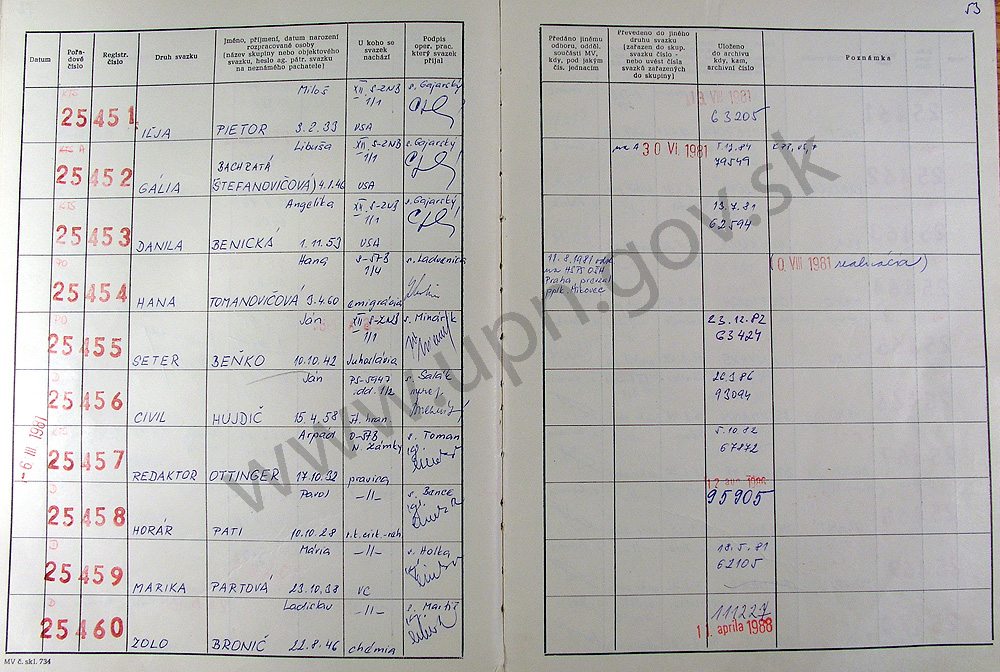 53
Datum
Pořa-
dové
číslo
Registr.
číslo
Druh svazku
Jméno, příjmení, datum narození
rozpracované osoby
(název skupiny nebo objektového
svazku, heslo ag. pátr. svazku
na neznámého pachatele)
U koho se
svazek
nachází
Podpis
oper. prac.
který svazek
přijal
Předáno jinému
odboru, odděl.
součásti MV,
kdy, pod jakým
čís. jednacím
Převedeno do jiného
druhu svazku
(zařazen do skup.
svazku číslo -
nebo uvést čísla
svazků zařazených
do skupiny)
Uloženo
do archivu
kdy, kam,
archivní číslo
Poznámka
KTS
25 451
IĽJA
Miloš
PIETOR 3.2.33
XII. S-ZNB
1/1
USA
s. Gajarský
VIII 1981
63205
A
25 452
GÁLIA
Libuša
BACHRATÁ
(ŠTEFANOVIČOVÁ) 4.1.46
XII. S-ZNB
1/1
USA
s. Gajarský
na A 30 VI. 1981
79549
KTS
25 453
DANILA
Angelika
BENICKÁ 1.11.53
XII. S-ZNB
1/1
USA
s. Gajarský
13.7.81
62594
PO
25 454
HANA
Hana
TOMANOVIČOVÁ 9.4.60
S-ŠTB
1/4
emigrácia
11.8.1981
Praha prevzal
pplk. Mikovec
VIII 1981 realizácia)
PO
25 455
SETER
Ján
BEŇKO 10.10.42
XII S-ZNB
1/1
Juhoslávia
s. Minárik
23.12.82
63424
D
25 456
CIVIL
Ján
HUJDIČ 15.4.58
PS-5947
dd. 1/2
št. hran.
s. Šalák
26.3.86
93094
25 457
REDAKTOR
Arpád
OTTINGER 17.10.32
O-ŠTB
N. Zámky
pravica
s. Toman
5.10.82
67872
-9. III 1981
D
25 458
HORÁR
Pavol
PATI 10.10.28
-11-
s. Bance
95905
D
25 459
MARIKA
Mária
PARTOVÁ 23.10.38
-11-
VC
s. Holka
18.5.81
62105
D
25 460
ZOLO
Ladislav
BRONIČ 22.8.46
-11-
chémia
111227
11. apríla 1988
MV č. skl. 734
www.upn.gov.sk